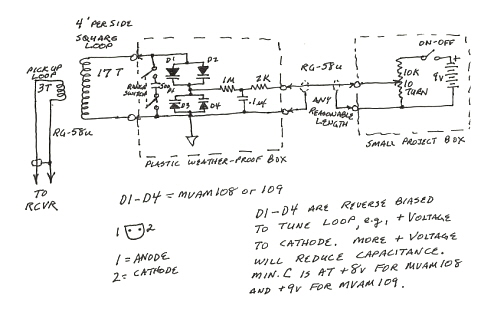 4' PER SIDE
SQUARE
LOOP
PICKUP
LOOP
3T
17T
D1
D2
D3
D4
1M
2K
.1uf
RG-58u
RG-58u
ANY
REASONABLE
LENGTH
ON-OFF
10K
10
TURN
+
9v
PLASTIC WEATHER-PROOF BOX
SMALL PROJECT BOX
TO
RCVR
D1-D4 = MVAM108 or 109
1 2
1 = ANODE
2 = CATHODE
D1-D4 ARE REVERSE BIASED
TO TUNE LOOP, e.g., + VOLTAGE
TO CATHODE. MORE + VOLTAGE
WILL REDUCE CAPACITANCE.
MIN. C IS AT +8v FOR MVAM108
AND +9v FOR MVAM109.